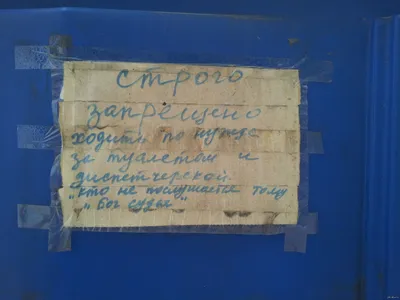 строго
запрещено
ходить по нужде
за туалетом и
диспетчерской
"кто не послушается тому
"Бог судья"